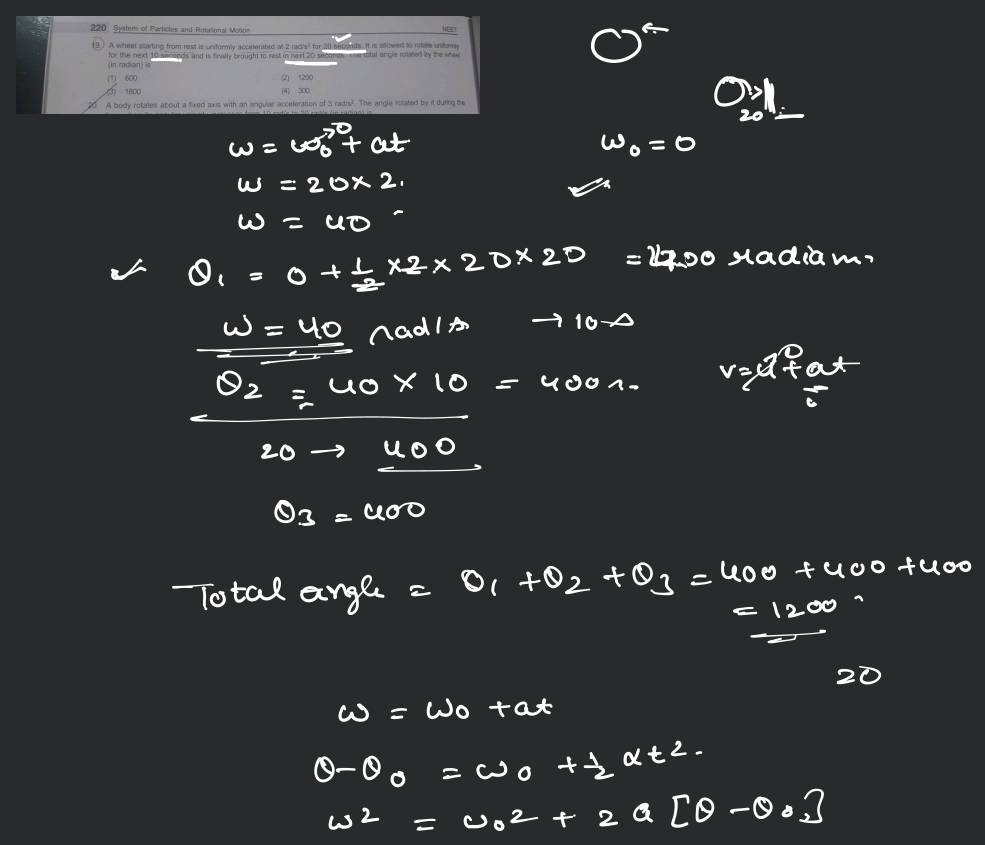 220 System of Particles and Rotational Motion NEET
19. A wheel starting from rest is uniformly accelerated at 2 rad/s² for 20 seconds. It is allowed to rotate uniformly
for the next 10 seconds and is finally brought to rest in next 20 seconds. The total angle rotated by the wheel
(in radian) is
(1) 600 (2) 1200
(3) 1800 (4) 300
20. A body rotates about a fixed axis with an angular acceleration of 3 rad/s². The angle rotated by it during the
20
ω = ω₀→0 + at ω₀ = 0
ω = 20×2.
ω = 40
θ₁ = 0 + 1/2 ×2 × 20×20 = 400 radian.
ω = 40 rad/s → 10 s
θ₂ = 40 × 10 = 400 r. v = u→0 + at
20 → 400
θ3 = 400
Total angle = θ₁ + θ2 + θ3 = 400 + 400 + 400
= 1200
20
ω = ω₀ + at
θ-θ₀ = ω₀ + 1/2 αt².
ω² = ω₀² + 2 a [θ-θ₀]